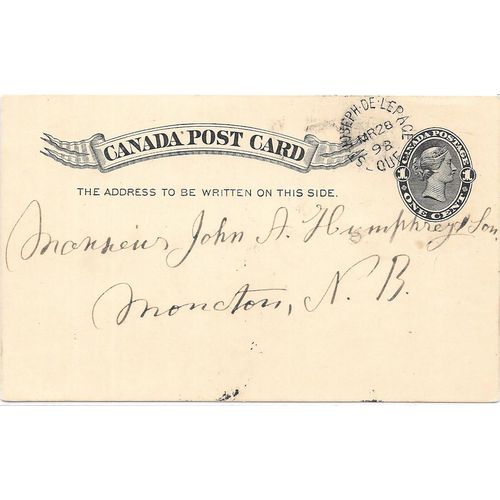 CANADA POST CARD
THE ADDRESS TO BE WRITTEN ON THIS SIDE.
ST JOSEPH-DE-LEPAGE
MR 28
98
QUE
CANADA POSTAGE
1 1
ONE CENT
Monsieur John A. Humphrey & Son
Moncton, N. B.